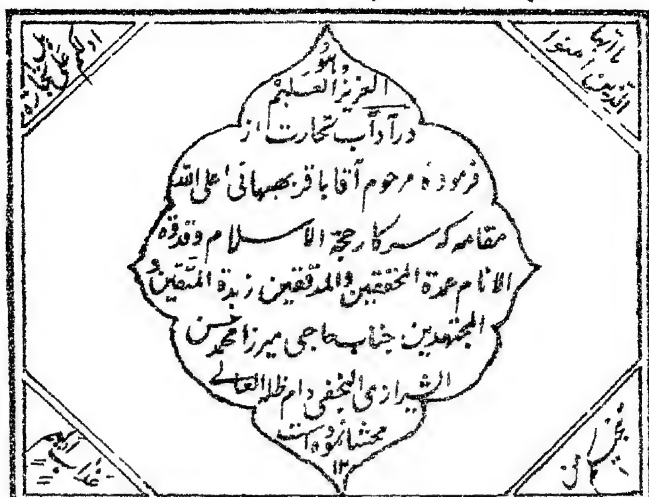 یا ایها
الذین امنوا
ادلکم
علی تجارة
هو
العزیز العلیم
در آداب تجارت از
فرموده مرحوم آقا باقر بهبهانی اعلی الله
مقامه که سرکار حجة الاسلام وقدوه
الانام عمدة المحققین والمدققین زبدة المتقین و
المجتهدین جناب حاجی میرزا محمد حسن
الشیرازی النجفی دام ظله العالے
محشا نموده است
۱۲
تنجیکم من
عذاب الیم